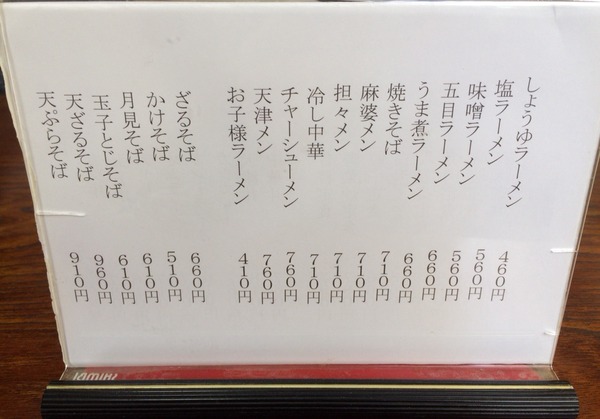 しょうゆラーメン 460円
塩ラーメン 560円
味噌ラーメン 560円
五目ラーメン 660円
うま煮ラーメン 660円
焼きそば 710円
麻婆メン 710円
担々メン 710円
冷し中華 710円
チャーシューメン 760円
天津メン 760円
お子様ラーメン 410円
ざるそば 660円
かけそば 510円
月見そば 610円
玉子とじそば 610円
天ざるそば 960円
天ぷらそば 910円